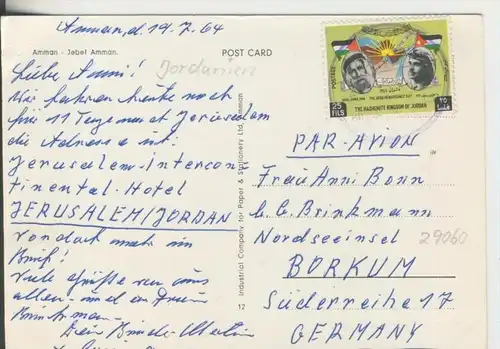 Amman, d. 19.7.64
Amman - Jebel Amman.
POST CARD
Jordanien
Liebe Anni!
Wir fahren heute noch
für 11 Tage nach Jerusalem
die Adresse ist:
Jerusalem-Intercon=
tinental-Hotel
JERUSALEM/JORDAN
von dort mehr im
Brief!
Viele Grüße von uns
allen - und an Deine
Dein Bruder
Industrial Company for Paper & Stationery Ltd. Amman
12
POSTAGE
THE HASHEMITE KINGDOM OF JORDAN
25
FILS
٢٥
PAR-AVION
Frau Anni Bonn
b. C. Brinkmann
Nordseeinsel
29060
BORKUM
Süderreihe 17
GERMANY